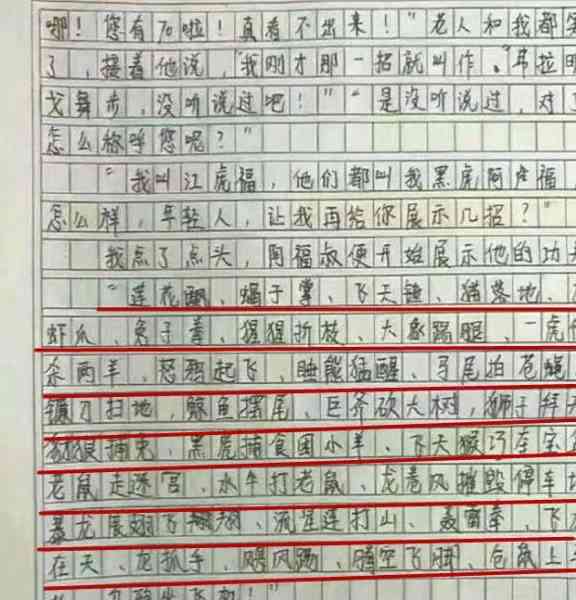 哪！您有70啦！真看不出来！"老人和我都笑
了，接着他说，"我刚才那一招就叫作。"韦拉
戈舞步，没听说过吧！""是没听说过，对了
怎么称呼您呢？"
"我叫江虎福，他们都叫我黑虎阿福
怎么祥，年轻人，让我再给你展示几招？"
我点了点头，阿福叔便开始展示他的功夫
"莲花 、蝎子掌、飞天锤、猫落地、
虾爪、兔子拳、猩猩折枝、大象踢腿、一虎
杀两羊、怒鸦起飞、睡熊猛醒、马尾拍苍蝇
镰刀扫地，鲸鱼摆尾、巨斧砍大树，狮子拜天
狼捕兔、黑虎捕食困小羊、飞天猴巧夺宝
老鼠走迷宫、水牛打老鼠、龙卷风摧毁停车场
暴龙展翅飞翱翔、流星连打山、轰雷拳、飞
在天、龙抓手、飓风踢、腾空飞脚、仓鼠上